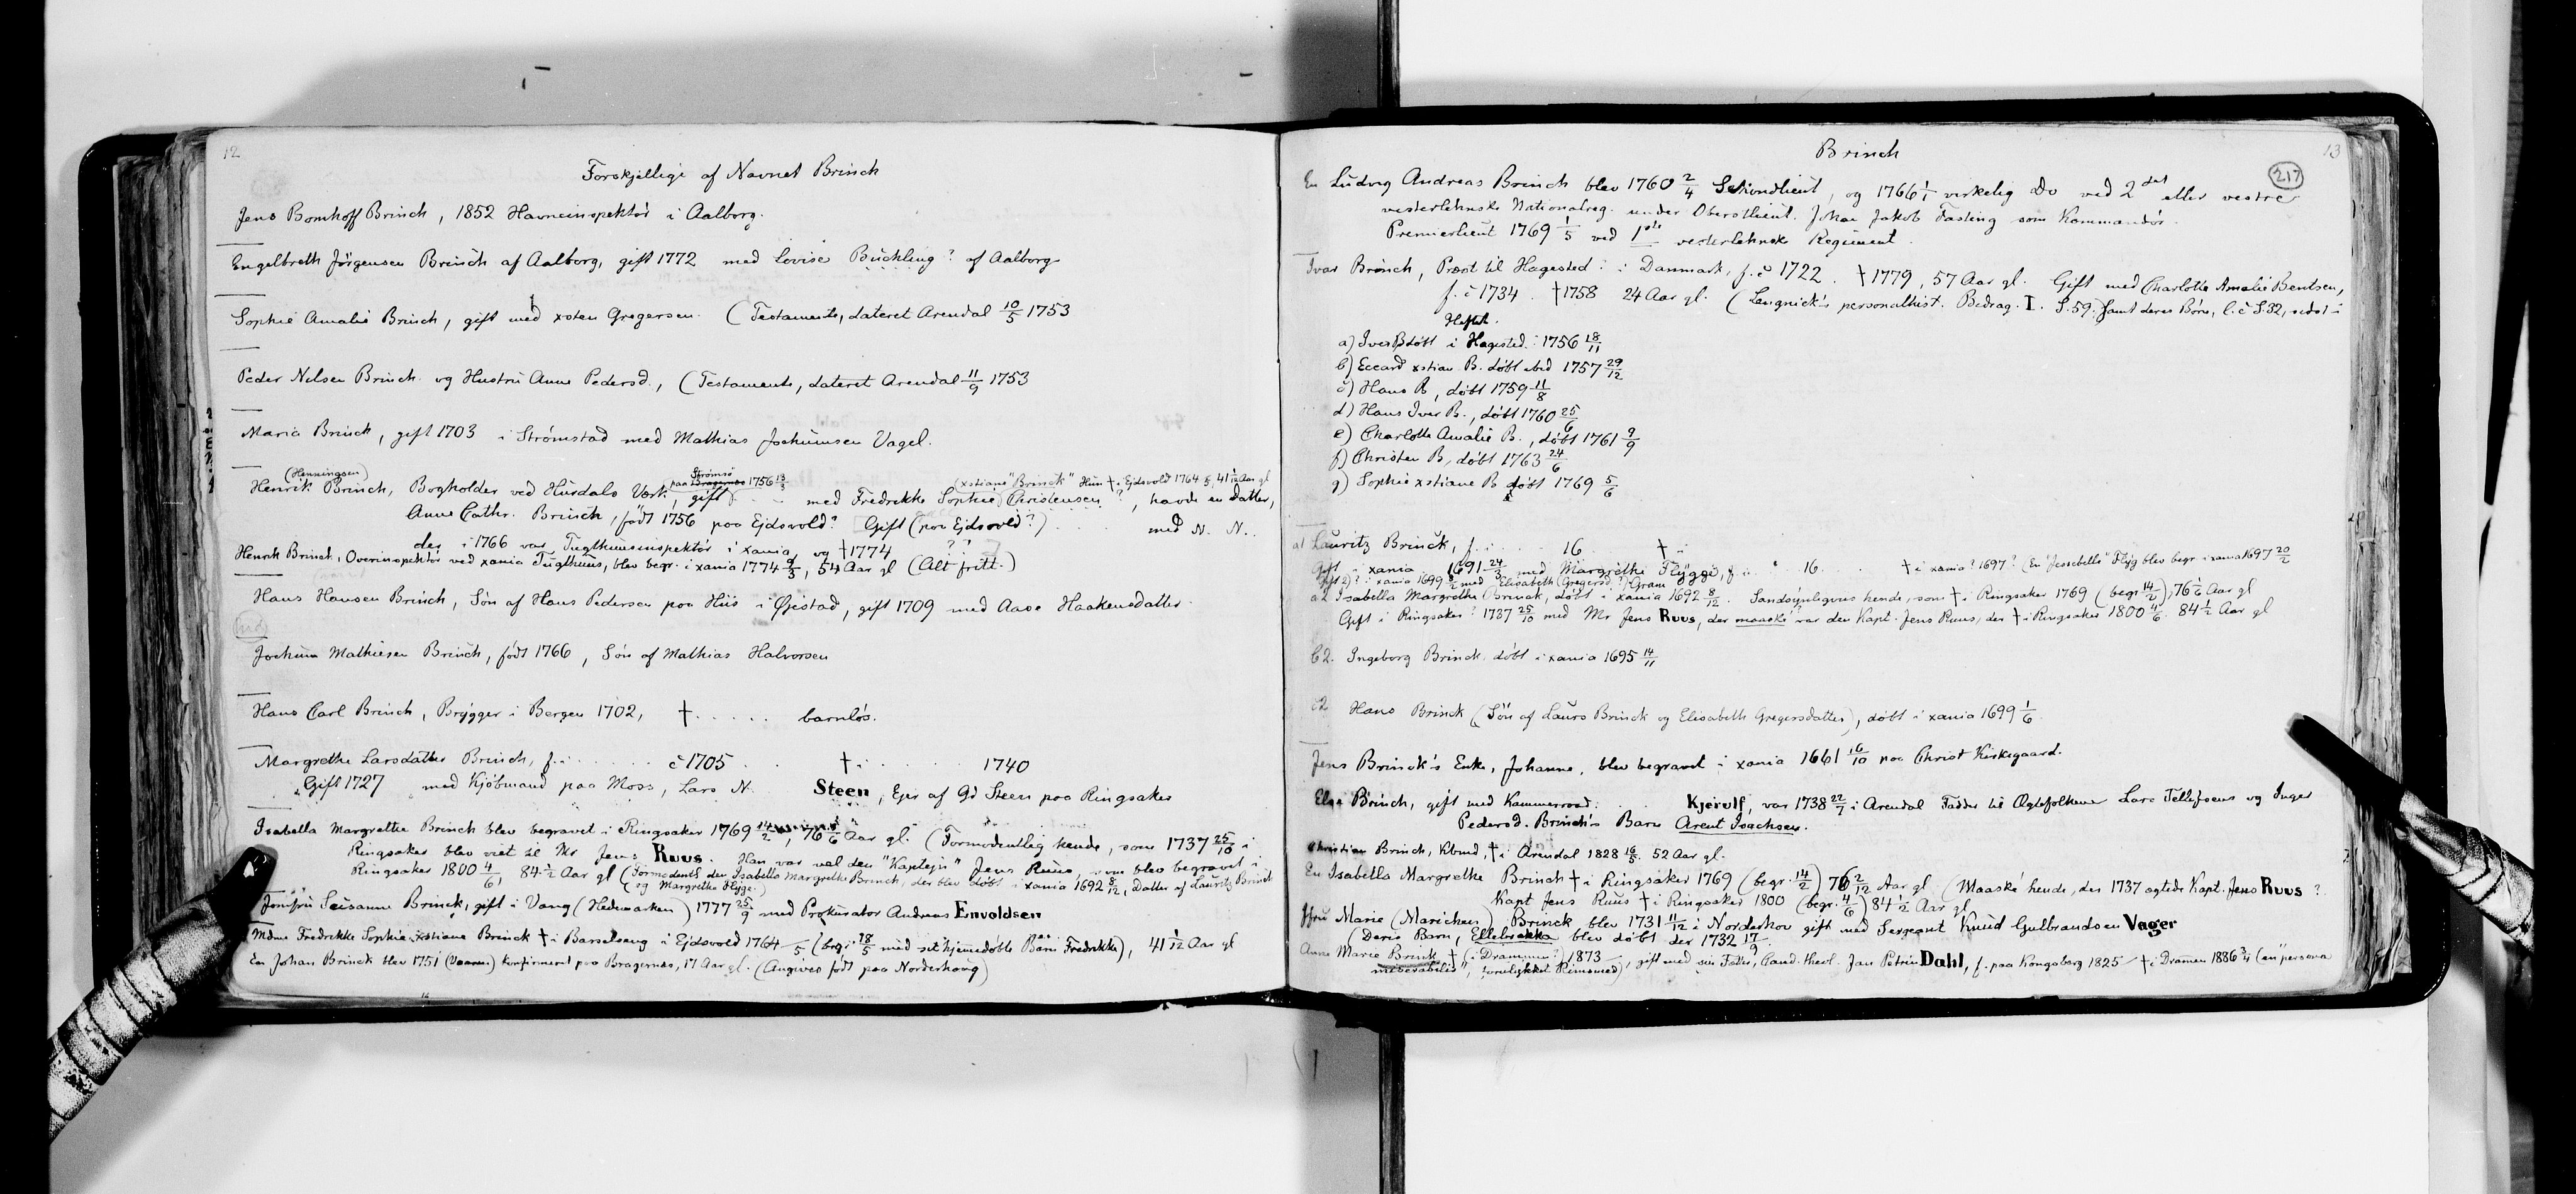 12
Forskjellige af Navnet Brinch
Jens Bomhoff Brinch, 1852 Havneinspektör i Aalborg.
Engelbreth Jörgensen Brinch af Aalborg, gift 1772 med Lovise Büchling? af Aalborg
Sophie Amalie Brinch, gift med xsten Gregersen. (Testamente, dateret Arendal 10/5 1753
Peder Nilsen Brinch og Hustru Anne Pedersd., (Testamente, dateret Arendal 11/9 1753
Maria Brinck, gift 1703 i Strømstad med Mathias Jochumsen Vagel.
(Henningsen) Strømsö
paa Bragernæs 1756 (xstiane "Brinck" Hun † Ejdsvold 1764 5/5, 41 1/12 Aar gl
Henrik Brinch, Bogholder ved Hurdals Værk, gift med Fredrikke Sophie Christensen?, havde en Datter,
Anne Cathr. Brinch, født 1756 paa Ejdsvold? Gift (paa Ejdsvold?) med N. N..
der i 1766 var Tugthuusinspektør i xania, og † 1774 ? ?
Henrik Brinch, Overinspektør ved xania Tugthuus, blev begr. i xania 1774 9/3, 54 Aar gl (Alt fritt.)
Hans Hansen Brinch, Sön af Hans Pedersen paa Hiis i Øjestad, gift 1709 med Aase Haakensdatter.
Jochum Mathiesen Brinch, født 1766, Sön af Mathias Halvorsen
Hans Carl Brinch, Brygger i Bergen 1702, † ..... barnløs.
Margrethe Larsdatter Brinch, f. i ...... c 1705 .. † i ...... 1740
Gift 1727 med Kjöbmand paa Moss, Lars N. Steen, Ejer af Gd Steen paa Ringsaker
Isabella Margrethe Brinch blev begravet i Ringsaker 1769 14/2, 76 5/6 Aar gl. (Formodentlig hende, som 1737 25/10 i
Ringsaker blev viet til Mr Jens Ruus. Han var vel den "Kaptejn" Jens Ruus, som blev begravet i
Ringsaker 1800 4/6, 84 1/2 Aar gl (Formodentl. den Isabella Margrethe Brinck, der blev døbt i xania 1692 8/12, Datter af Lauritz Brinck
og Margrethe Flyge.)
Jomfru Susanne Brinck, gift i Vang (Hedemarken) 1777 25/9 med Prokurator Andreas Envoldsen
Mdme Fredrikke Sophie xstiane Brinck † i Barselseng i Ejdsvold 1764 /5 (begr. 18/5 med sit hjemedøbte Barn Fredrikke), 41 1/12 Aar gl
En Johan Brinck blev 1751 (Vaaren) konfirmeret paa Bragernæs, 17 Aar gl. (Angives født paa Norderhoug)
Brinch
13
217
En Ludvig Andreas Brinch blev 1760 2/4 Sekondlieut, og 1766 1/1 virkelig Do ved 2det eller vestre
vesterlehnske Nationalreg. under Oberstlieut. Johan Jakob Fasting som Kommandör.
Premierlieut 1769 1/5 ved 1ste vesterlehnske Regiment.
Ivar Brinch, Præst til Hagested i Danmark, f. c 1722. † 1779, 57 Aar gl. Gift med Charlotte Amalie Bentsen,
f. c 1734. † 1758 24 Aar gl. (Lengnick's personalhist. Bidrag. I. S. 59. Samt deres Börn, l. c S. 32, sidst i
Heftet.
a) Iver B døbt i Hagested. 1756 18/11
b) Eccard xstian B. døbt ibid 1757 29/12
c) Hans B, døbt 1759 11/8
d) Hans Iver B., døbt 1760 25/6
e) Charlotte Amalie B., døbt 1761 9/9
f) Christen B, døbt 1763 24/6
g) Sophie xstiane B døbt 1769 5/6
a1 Lauritz Brinck, f. i ..... 16 † i
gift i xania 1691 24/3 med Margrethe Flygge, f. i " 16. † i xania? 1697? (En "Jessebelle" Flyg blev begr i xania 1697 20/2
Gift 2)? i xania 1699 2 med Elisabeth (Gregersd.?) Gram
a2 Isabella Margrethe Brinck, døbt i xania 1692 8/12. Sandsynligvis hende, som † i Ringsaker 1769 (begr 14/2), 76 1/6 Aar gl
Gift i Ringsaker 1737 25/10 med Mr Jens Ruus, der maaske var den Kapt. Jens Ruus, der † i Ringsaker 1800 4/6. 84 1/2 Aar gl
b2. Ingeborg Brinck. døbt i xania 1695 14/11
c2 Hans Brinck (Sön af Laurs Brinck og Elisabeth Gregersdatter), døbt i xania 1699 1/6
Jens Brinck's Enke, Johanne, blev begravet i xania 1661 16/10 paa Christ Kirkegaard.
Else Brinch, gift med Kammerraad. Kjerulf, var 1738 22/7 i Arendal Fadder til Ægtefolkene Lars Tellefsens og Inger
Pedersd. Brinch's Barn Arent Isachsen.
Christian Brinch, Kbmd, † i Arendal 1828 16/5. 52 Aar gl.
En Isabella Margrethe Brinch † i Ringsaker 1769 (begr. 14/2) 76 2/12 Aar gl (Maaske hende, der 1737 ægtede Kapt. Jens Ruus?
Kapt Jens Ruus † i Ringsaker 1800 (begr. 4/6) 84 1/2 Aar gl
Jfru Marie (Marichen) Brinck blev 1731 11/12 i Norderhov gift med Sergeant Knud Gulbrandsen Vager
(Deres Barn, Ellebrekka blev døbt der 1732 17/9
Anne Marie Brinck † (i Drammen?) 1873, gift med sin Fætter, Cand. theol. Jan Petrin Dahl, f. paa Kongsberg 1825 † i Dramen 1886 3/4 (en "persona
miserabilis", forulykket Rimsmed)